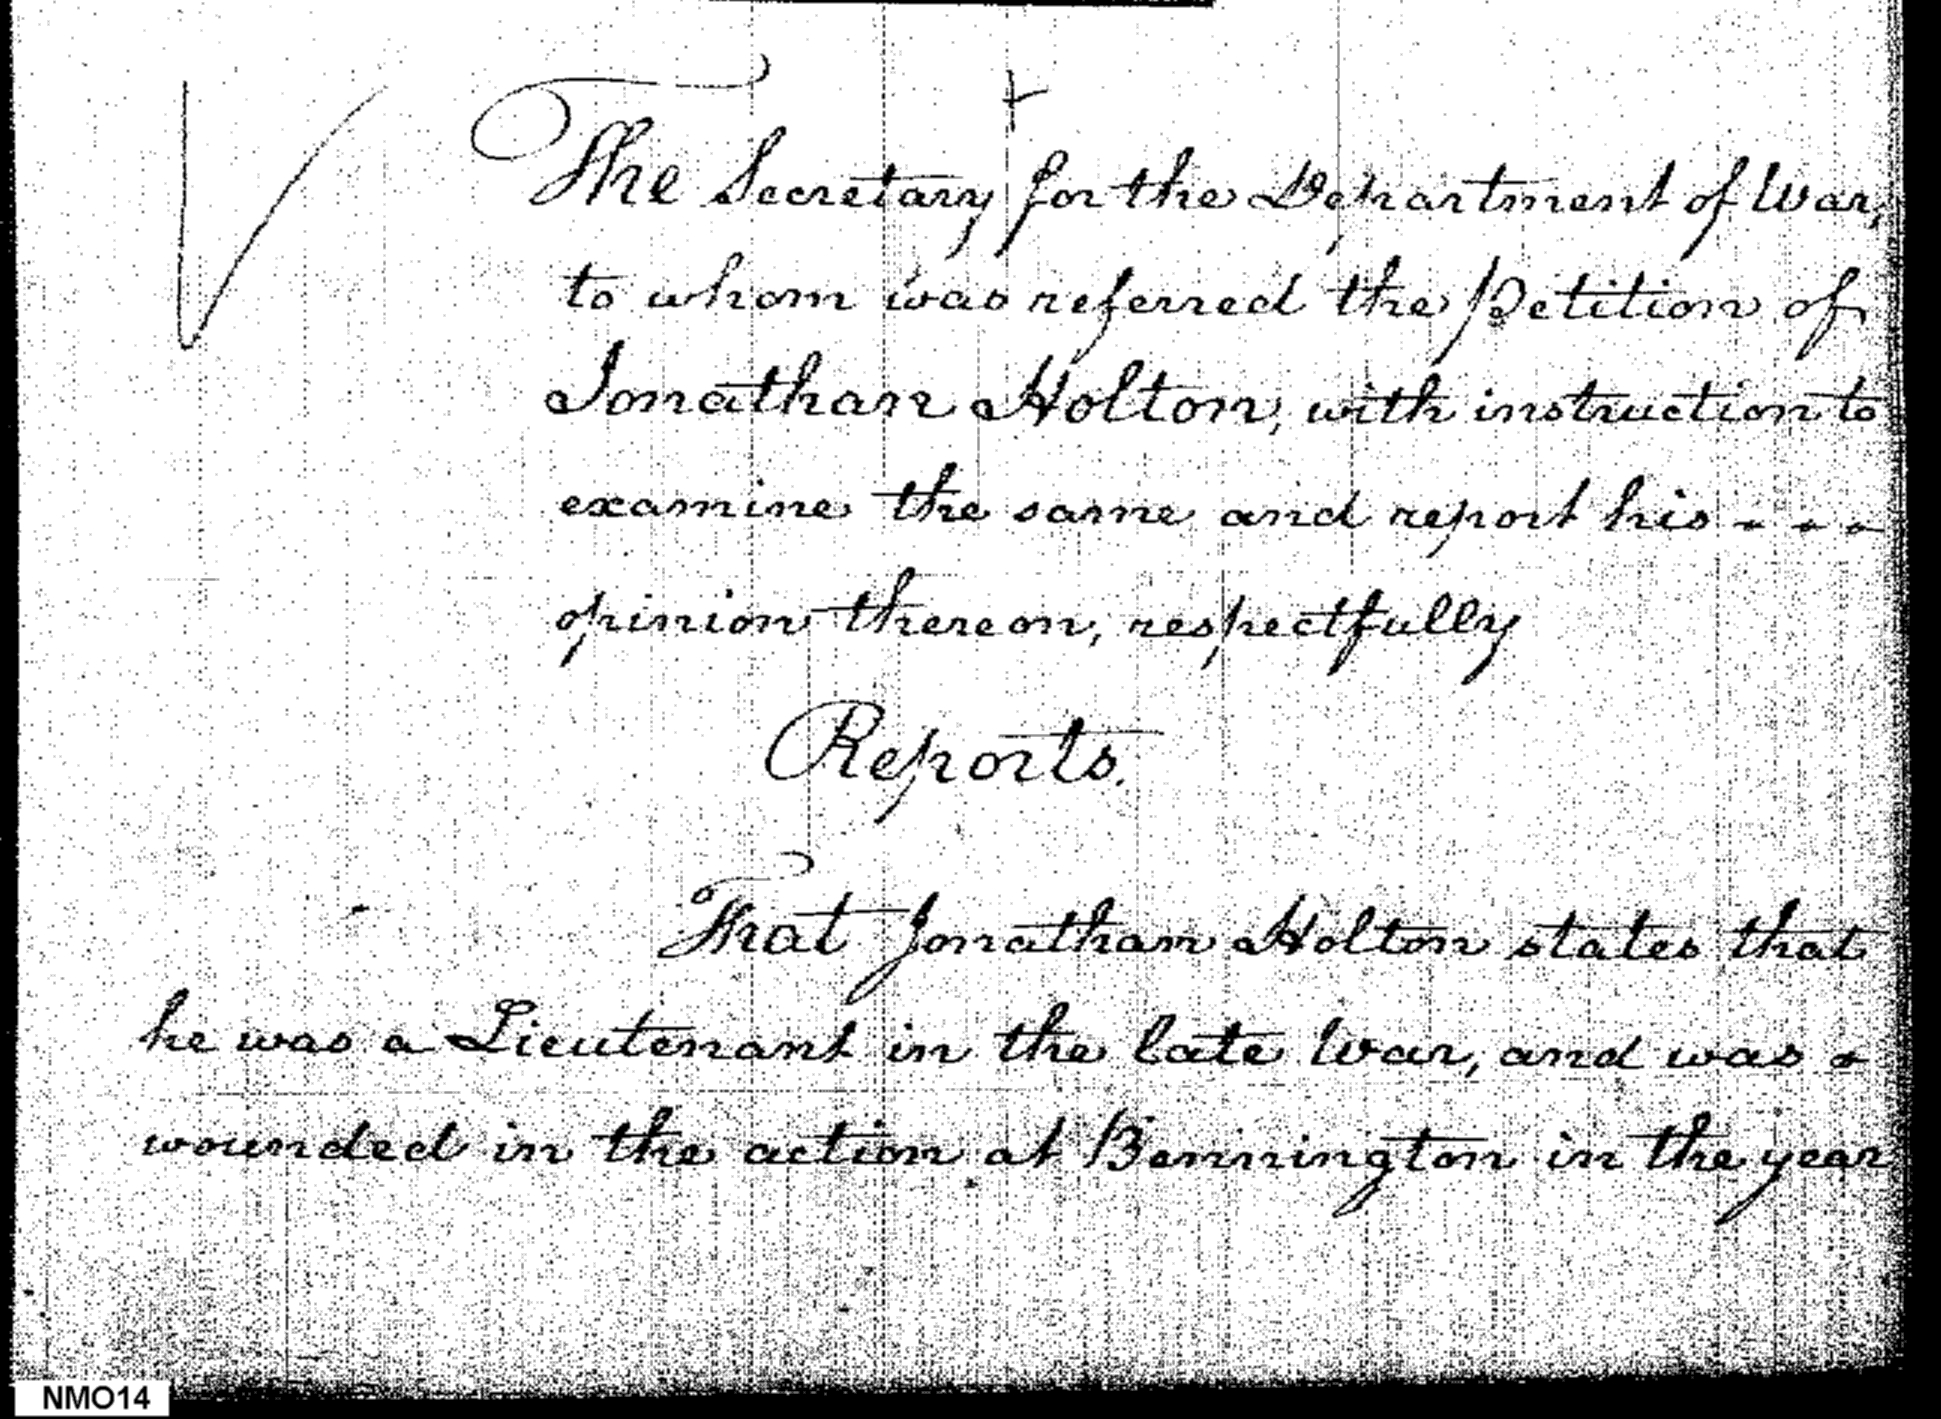 The Secretary for the Department of War,
to whom was referred the Petition of
Jonathan Holton, with instruction to
examine the same and report his - - -
opinion thereon, respectfully
Reports.
That Jonathan Holton states that
he was a Lieutenant in the late War, and was -
wounded in the action at Bennington in the year
NMO14